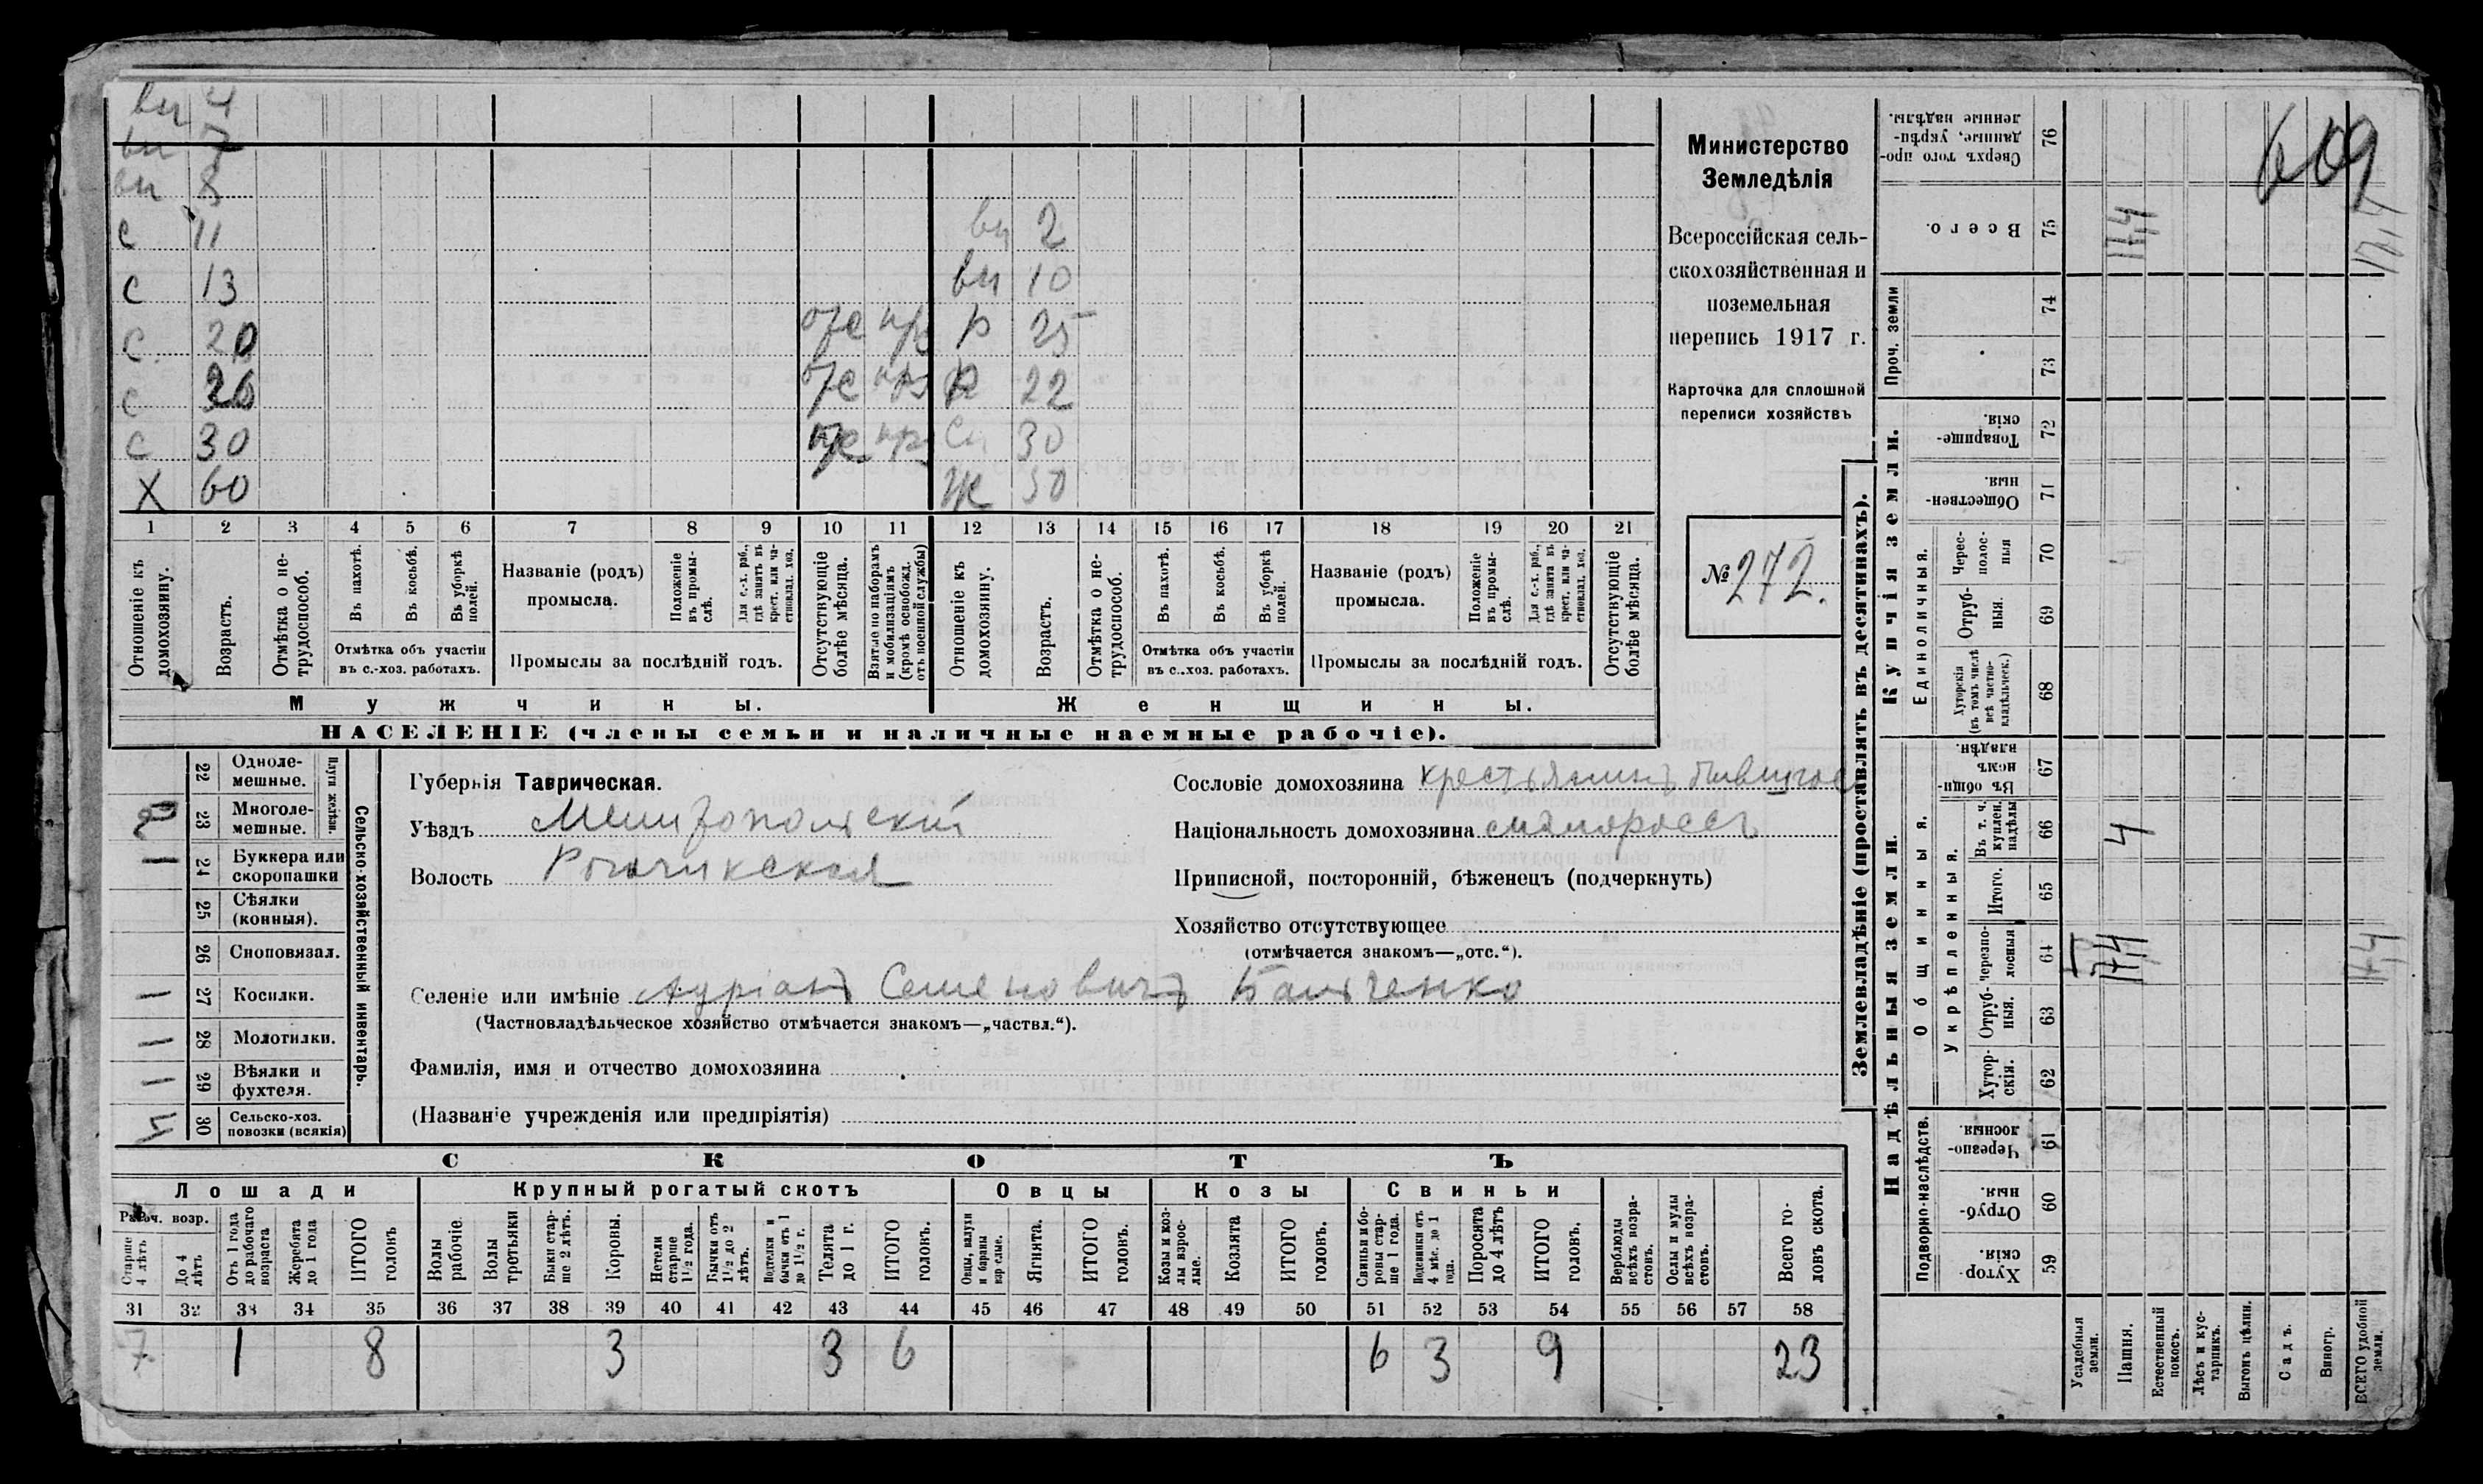 609
вн 4
вн 7
вн 8
с 11
вн 2
с 13
вн 10
с 20 р 25
с 26 22
с 30 30
Х 60 Ж 50
1 2 3 4 5 6 7 8 9 10 11 12 13 14 15 16 17 18 19 20 21
Отношеніе къ домохозяину.
Возрастъ.
Отмѣтка о не-
трудоспособ.
Въ пахотѣ.
Въ косьбѣ.
Въ уборкѣ полей.
Отмѣтка объ участіи
въ с.-хоз. работахъ.
Названіе (родъ)
промысла.
Положеніе въ промы-
слѣ.
Для с.-х. раб., гдѣ занятъ въ крест. или ча-
стновлад. хоз.
Промыслы за послѣдній годъ.
Отсутствующіе болѣе мѣсяца.
Взятые по наборамъ и мобилизаціямъ (кромѣ освобожд. отъ военной службы)
Отношеніе къ домохозяину.
Возрастъ.
Отмѣтка о не-
трудоспособ.
Въ пахотѣ.
Въ косьбѣ.
Въ уборкѣ полей.
Отмѣтка объ участіи
въ с..хоз. работахъ.
Названіе (родъ)
промысла.
Положеніе въ промы-
слѣ.
Для с.-х. раб., гдѣ занята въ крест. или ча-
стновлад. хоз.
Промыслы за послѣдній годъ.
Отсутствующіе болѣе мѣсяца.
Мужчины.
Женщины.
НАСЕЛЕНІЕ (члены семьи и наличные наемные рабочіе).
Министерство
Земледѣлія
Всероссійская сель-
скохозяйственная и
поземельная
перепись 1917 г.
Карточка для сплошной
переписи хозяйствъ
№ 272.
22 Одноле-
мешные.
23 Многоле-
мешные.
Плуги желѣзн.
1 24 Буккера или
скоропашки
25 Сѣялки
(конныя).
26 Сноповязал.
1 27 Косилки.
1 28 Молотилки.
1 29 Вѣялки и
фухтеля.
30 Сельско-хоз.
повозки (всякія)
Сельско-хозяйственный инвентарь.
Губернія Таврическая.
Уѣздъ Мелитопольскій
Волость Рогачикская
Сословіе домохозяина крестьянинъ бывш
Національность домохозяина малороссъ
Приписной, посторонній, бѣженецъ (подчеркнуть)
Хозяйство отсутствующее
(отмѣчается знакомъ—„отс.“).
Селеніе или имѣніе Семеновичъ
(Частновладѣльческое хозяйство отмѣчается знакомъ—„частвл.“).
Фамилія, имя и отчество домохозяина
(Названіе учрежденія или предпріятія)
СКОТЪ
Лошади
Крупный рогатый скотъ
Овцы
Козы
Свиньи
Рабоч. возр.
Старше 4 лѣтъ
До 4 лѣтъ
Отъ 1 года до рабочаго возраста
Жеребята до 1 года
ИТОГО головъ
Волы рабочіе.
Волы третьяки
Быки стар-
ше 2 лѣтъ.
Коровы.
Нетели старше 1½ года.
Бычки отъ 1½ до 2 лѣтъ.
Подтелки и бычки отъ 1 до 1½ г.
Телята до 1 г.
ИТОГО головъ.
Овцы, валухи и бараны взрослые.
Ягнята.
ИТОГО головъ.
Козы и коз-
лы взрос-
лые.
Козлята
ИТОГО головъ.
Свиньи и бо-
ровы стар-
ше 1 года.
Подсвинки отъ 4 мѣс. до 1 года.
Поросята до 4 лѣтъ
ИТОГО головъ.
Верблюды всѣхъ возра-
стовъ.
Ослы и мулы всѣхъ возра-
стовъ.
Всего го-
ловъ скота.
31 32 33 34 35 36 37 38 39 40 41 42 43 44 45 46 47 48 49 50 51 52 53 54 55 56 57 58
7 1 8 3 3 6 6 3 9 23
Землевладѣніе (проставлять въ десятинахъ).
Купчія земли.
Надѣльныя земли.
Сверхъ того про-
данные, укрѣп-
ленные надѣлы. 76
Всего. 75
Проч. земли 74
73
Товарище-
скія. 72
Обществен-
ныя. 71
Единоличныя.
Черес-
полос-
ныя 70
Отруб-
ныя. 69
Хуторскія (въ томъ числѣ всѣ частно-
владѣльческ.) 68
Общинныя.
Въ общин-
номъ владѣн. 67
Укрѣпленныя.
Въ т. ч. куплен. надѣлы 66
4
Итого. 65
Черезпо-
лосныя 64
Отруб-
ныя. 63
Хутор-
скія. 62
Подворно-наслѣдств.
Черезпо-
лосныя. 61
Отруб-
ныя. 60
Хутор-
скія. 59
Усадебныя земли.
Пашня.
Естественный покосъ.
Лѣсъ и кус-
тарникъ.
Выгонъ цѣлин.
Садъ.
Виногр.
ВСЕГО удобной земли.